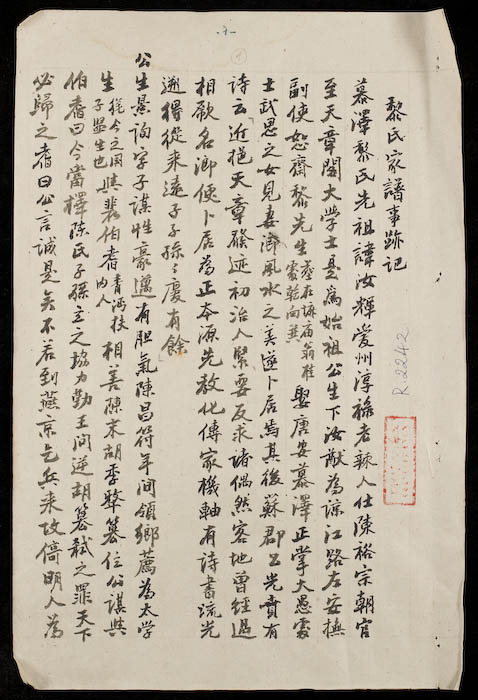 -1-
黎氏家譜事跡記
慕澤黎氏先祖諱汝輝愛州淳祿老辣人仕陳裕宗朝官
至天章閣大学士是為始祖公生下汝猷為諒江路左安撫
副使恕齋黎先生 娶唐安慕澤正掌大愚處
士武思之女見妻鄉風水之美遂卜居焉其後蘇郡公光賁有
詩云近挹天章發迹初冶人緊要反求諸偶然客地曾經過
相欣名鄉便卜居為正本源先教化傳家機軸有詩書流光
遡得從來遠子子孫〻慶有餘
公生景詢字子謀性豪邁有胆氣陳昌符年間領鄉薦為太学
生 從今之国子監生也 與裴伯耆 青沔扶內人 相善陳末胡季犛篡位公謀與
伯耆曰今當擇陳氏子孫立之協力勤王问逆胡篡弒之罪天下
必歸之耆曰公言誠是矣不若到燕京乞兵来攻倘明人為
R 2242